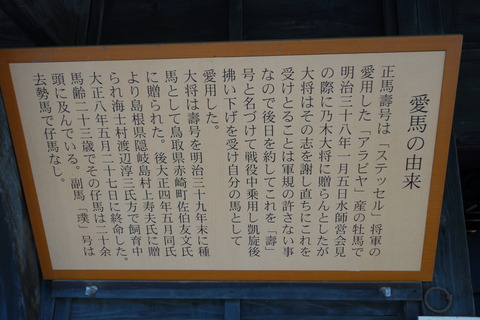 愛馬の由来
正馬壽号は「ステッセル」将軍の
愛用した「アラビヤ」産の牡馬で
明治三十八年一月五日水師営会見
の際に乃木大将に贈らんとしたが
大将はその志を謝し直ちにこれを
受けとることは軍規の許さない事
なので後日を約してこれを「壽」
号と名づけて戦役中乗用し凱旋後
拂い下げを受け自分の馬として
愛用した。
大将は壽号を明治三十九年末に種
馬として鳥取県赤崎町佐伯友文氏
に贈られた。後大正四年五月同氏
より島根県隠岐島村上寿夫氏に贈
られ海士村渡辺淳三氏方で飼育中
大正八年五月二十七日に終命した。
馬齢二十三歳でその仔馬は二十余
頭に及んでいる。副馬「璞」号は
去勢馬で仔馬なし。